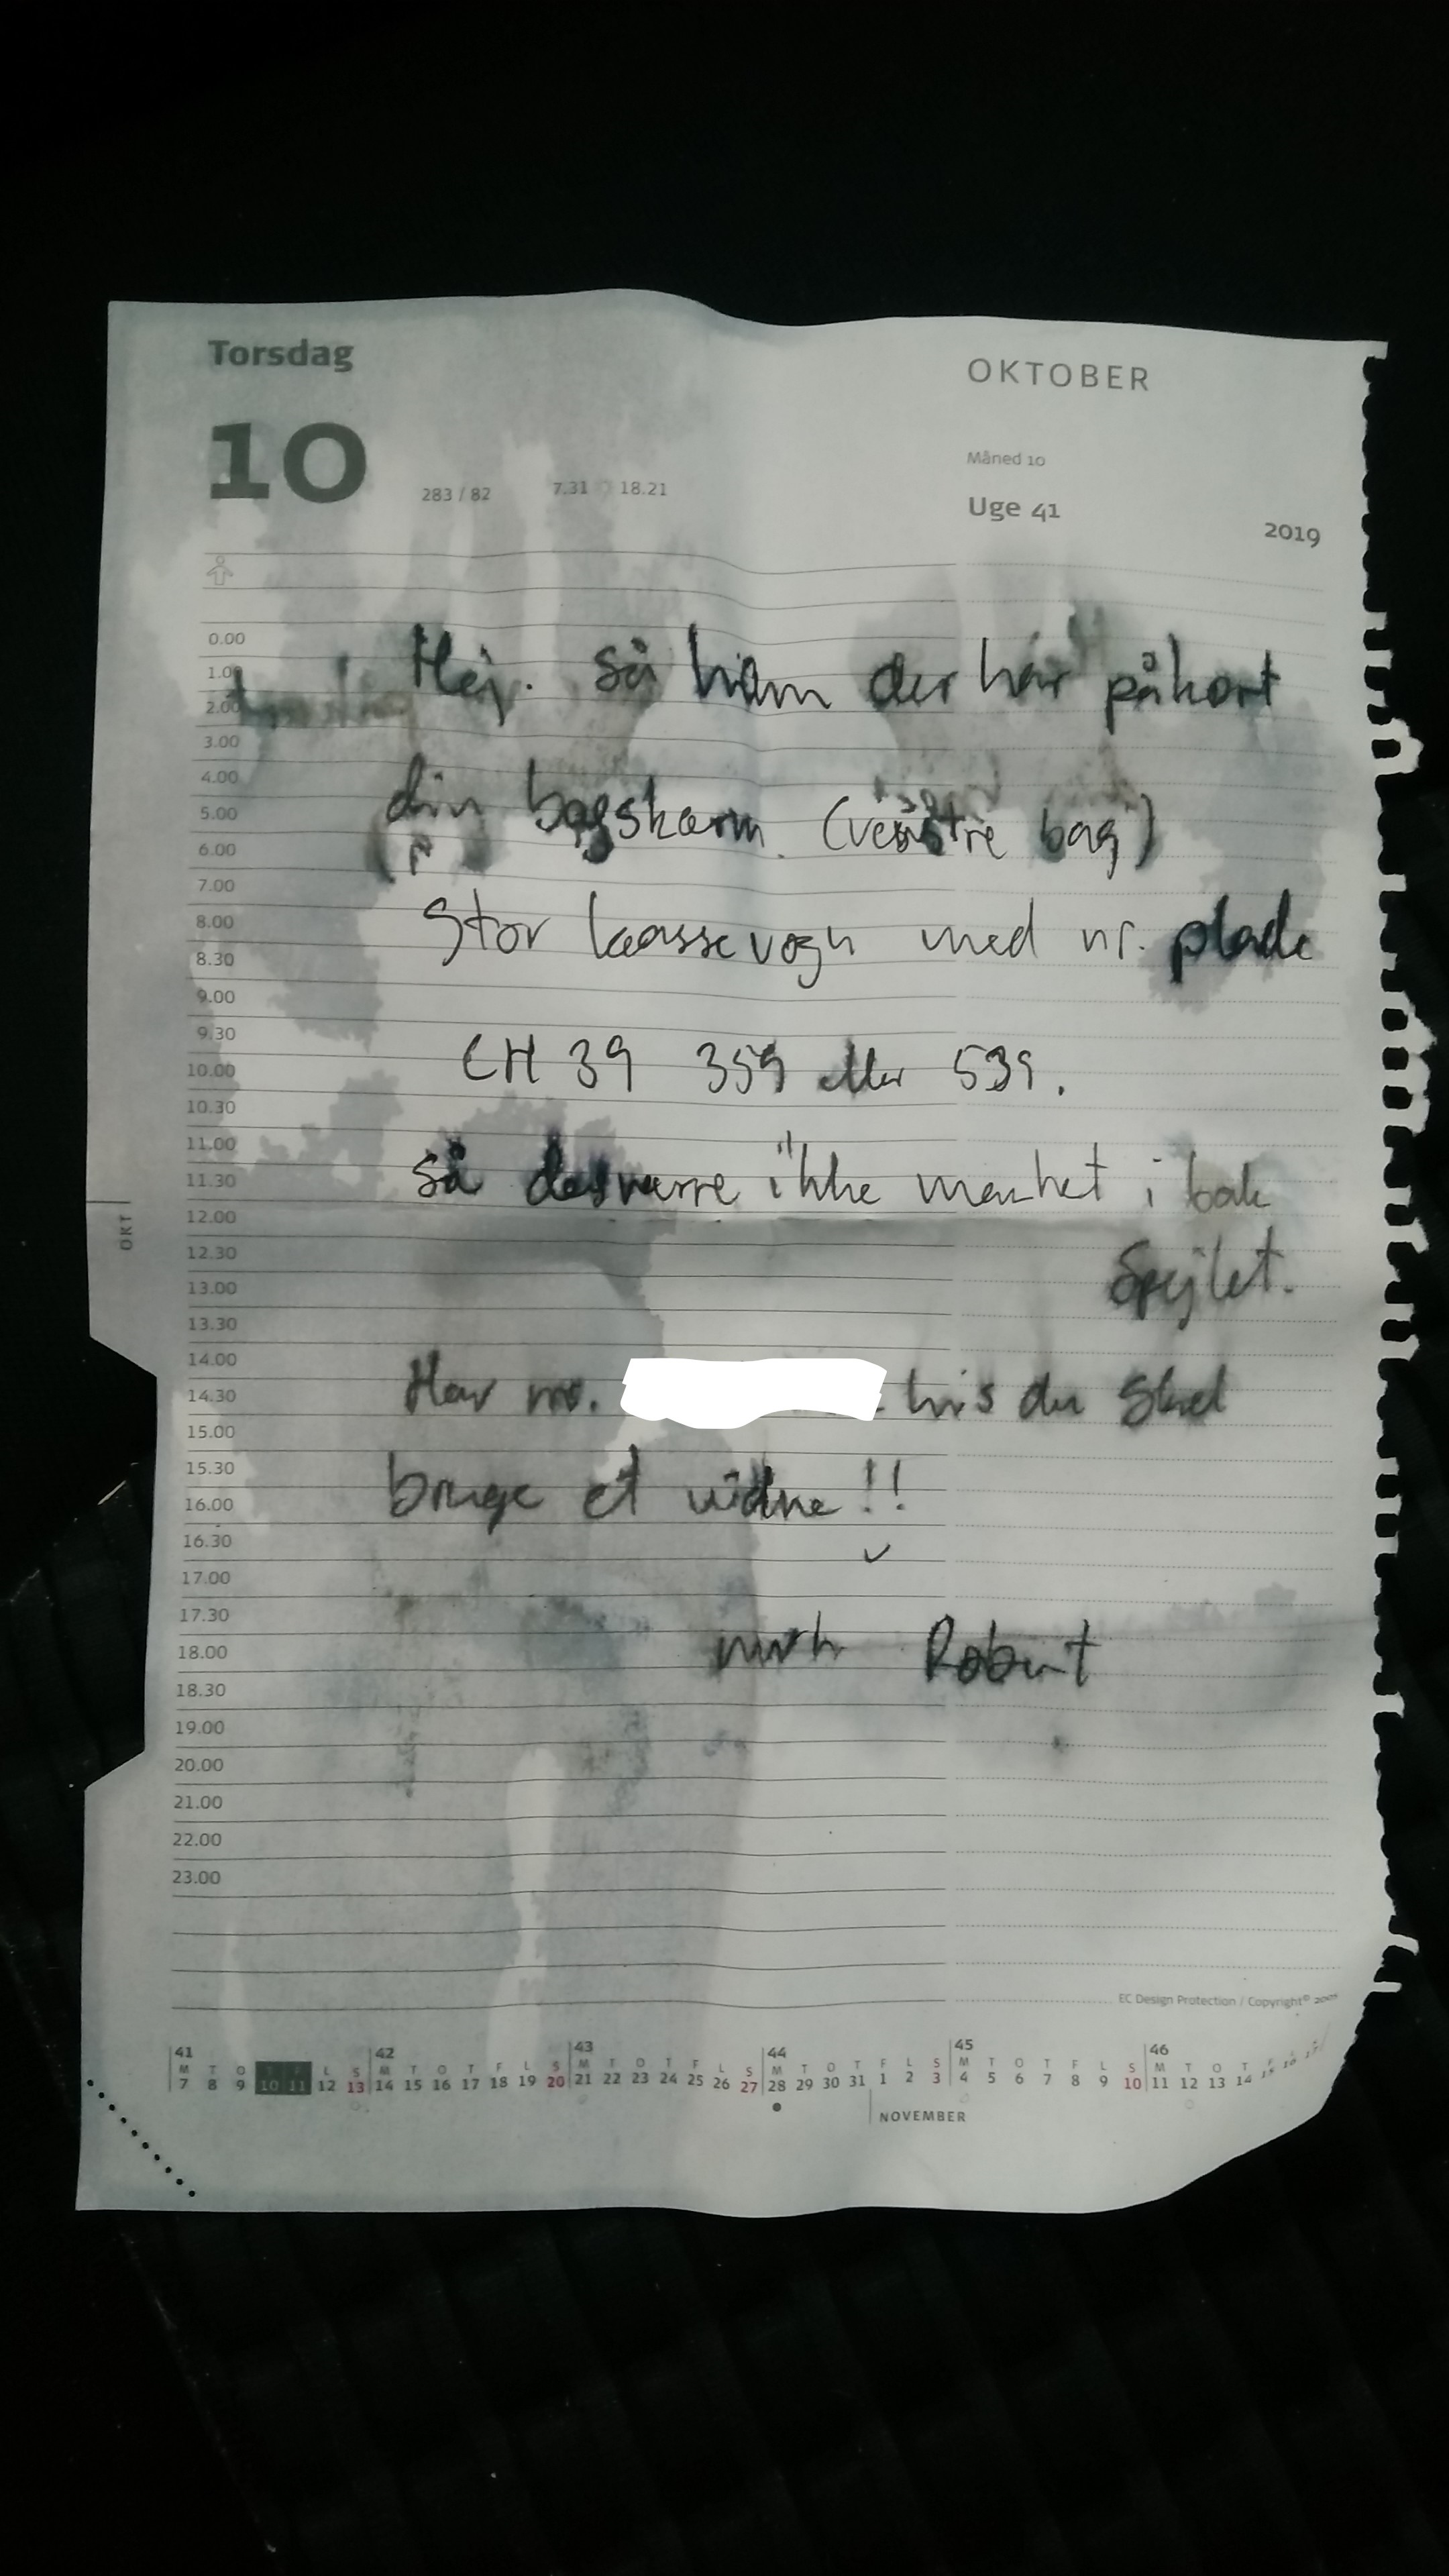 Torsdag
OKTOBER
10
283 / 82
7.31 18.21
Måned 10
Uge 41
2019
0.00
1.00
2.00
3.00
4.00
5.00
6.00
7.00
8.00
8.30
9.00
9.30
10.00
10.30
11.00
11.30
12.00
12.30
13.00
13.30
14.00
14.30
15.00
15.30
16.00
16.30
17.00
17.30
18.00
18.30
19.00
20.00
21.00
22.00
23.00
OKT
Hej. så ham der har påkørt
din bagskærm. (venstre bag)
Stor kassevogn med nr. plade
CH 39 359 eller 539.
så desværre ikke mærket i bak
Spejlet.
Har nr. hvis du skal
bruge et vidne!!
mvh Robert
EC Design Protection / Copyright©
41 42 43 44 45 46
M T O T F L S M T O T F L S M T O T F L S M T O T F L S M T O T F L S M T O T
7 8 9 10 11 12 13 14 15 16 17 18 19 20 21 22 23 24 25 26 27 28 29 30 31 1 2 3 4 5 6 7 8 9 10 11 12 13 14 15 16 17
NOVEMBER